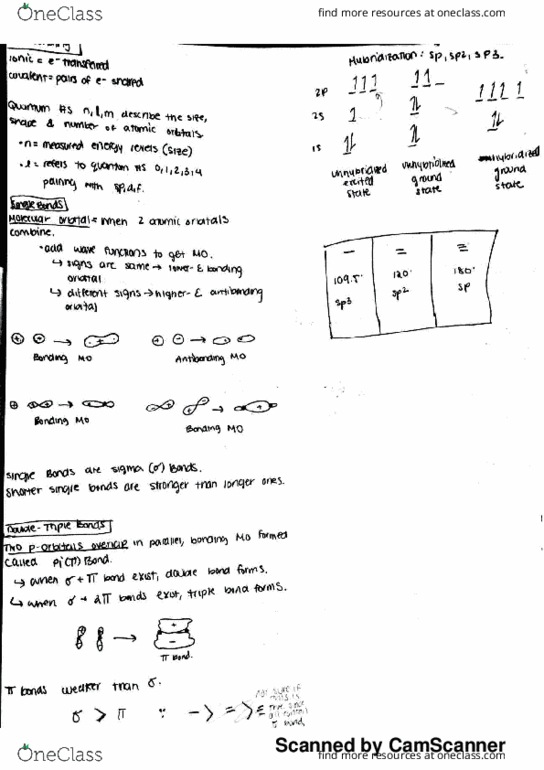 OneClass
find more resources at oneclass.com
ionic = e- transferred
covalent = pairs of e- shared
Quantum #s n, l, m describe the size,
shape & number of atomic orbitals.
• n = measured energy levels (size)
• l = refers to quantum #s 0, 1, 2, 3, 4
pairing with s,p,d,f.
Single Bonds
Molecular orbital = when 2 atomic orbitals
combine.
• add wave functions to get MO.
↳ signs are same → lower-E bonding
orbital
↳ different signs → higher-E antibonding
orbital
Bonding MO
Antibonding MO
Bonding MO
Bonding MO
Single Bonds are sigma (σ) Bonds.
Shorter single bonds are stronger than longer ones.
Double-Triple Bonds
Two p-orbitals overlap in parallel, bonding MO formed
called Pi (π) Bond.
↳ when σ + π bond exist, double bond forms.
↳ when σ + 2π bonds exist, triple bond forms.
+
−
π bond.
π bonds weaker than σ.
σ > π ∵ − > = > ≡
Hybridization: sp, sp2, sp3.
2p
2s
1s
unhybridized
excited
state
unhybridized
ground
state
hybridized
ground
state
− = ≡
109.5° 120° 180°
sp3 sp2 sp
Scanned by CamScanner
OneClass
find more resources at oneclass.com